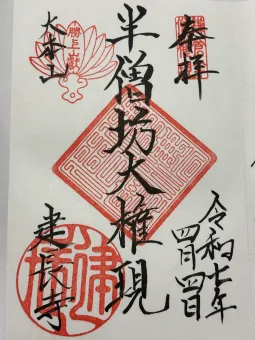 奉拝
半僧坊大権現
大本山
建長寺
令和七年
四月四日
勝上山献